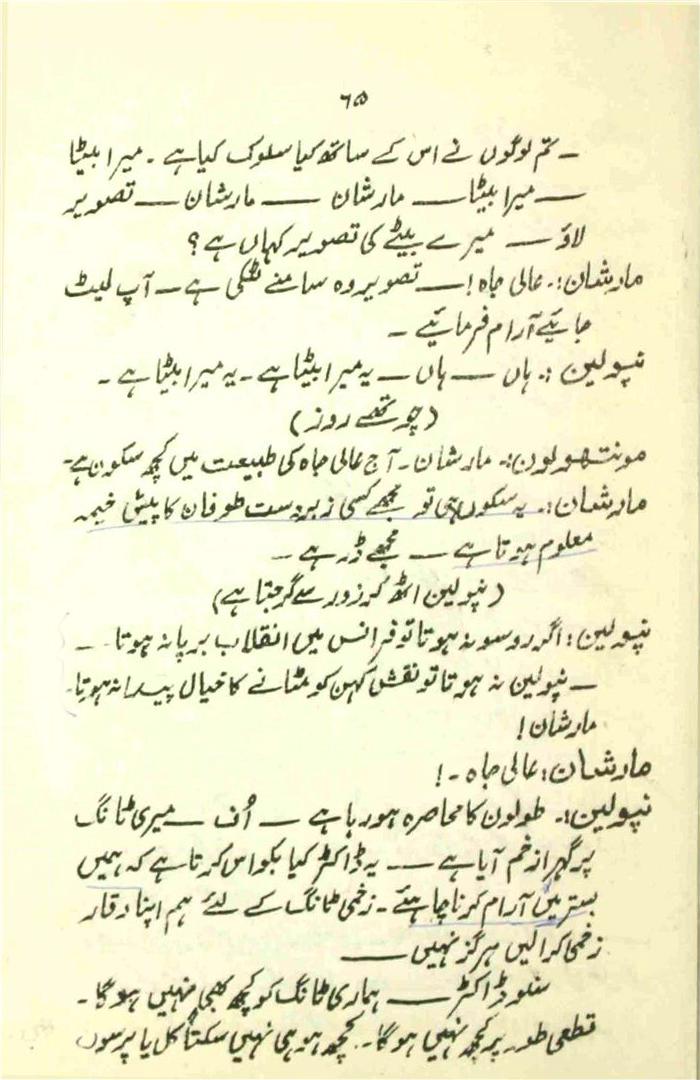 ۶۵
— تم لوگوں نے اس کے ساتھ کیا سلوک کیا ہے ۔ میرا بیٹا
— میرا بیٹا — مارشان — مارشان — تصویر
لاؤ — میرے بیٹے کی تصویر کہاں ہے ؟
مارشان :۔ عالی جاہ ! — تصویر وہ سامنے لٹکی ہے — آپ لیٹ
جائیے آرام فرمائیے —
نپولین :۔ ہاں — ہاں — یہ میرا بیٹا ہے ۔ یہ میرا بیٹا ہے ۔
(چوتھے روز)
مونتھولون :۔ مارشان ۔ آج عالی جاہ کی طبیعت میں کچھ سکون ہے ۔
مارشان :۔ یہ سکون ہی تو مجھے کسی زبردست طوفان کا پیش خیمہ
معلوم ہوتا ہے — مجھے ڈر ہے —
(نپولین اٹھ کر زور سے گرجتا ہے)
نپولین : اگر روسو نہ ہوتا تو فرانس میں انقلاب برپا نہ ہوتا ۔ —
— نپولین نہ ہوتا تو نقش کہن کو مٹانے کا خیال پیدا نہ ہوتا ۔
مارشان !
مارشان : عالی جاہ ۔ !
نپولین :۔ طولون کا محاصرہ ہو رہا ہے — اُف — میری ٹانگ
پر گہرا زخم آیا ہے — یہ ڈاکٹر کیا بکواس کرتا ہے کہ ہمیں
بستر میں آرام کرنا چاہئے ۔ زخمی ٹانگ کے لئے ہم اپنا وقار
زخمی کرا لیں ہرگز نہیں —
سنو ڈاکٹر — ہماری ٹانگ کو کچھ بھی نہیں ہوگا ۔
قطعی طور پر کچھ نہیں ہوگا ۔ کچھ ہو ہی نہیں سکتا کل یا پرسوں